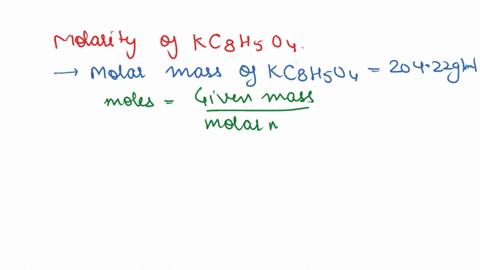 Molarity of KC8H5O4.
→ Molar mass of KC8H5O4 = 204.22g/ml
moles = Given mass
molar n